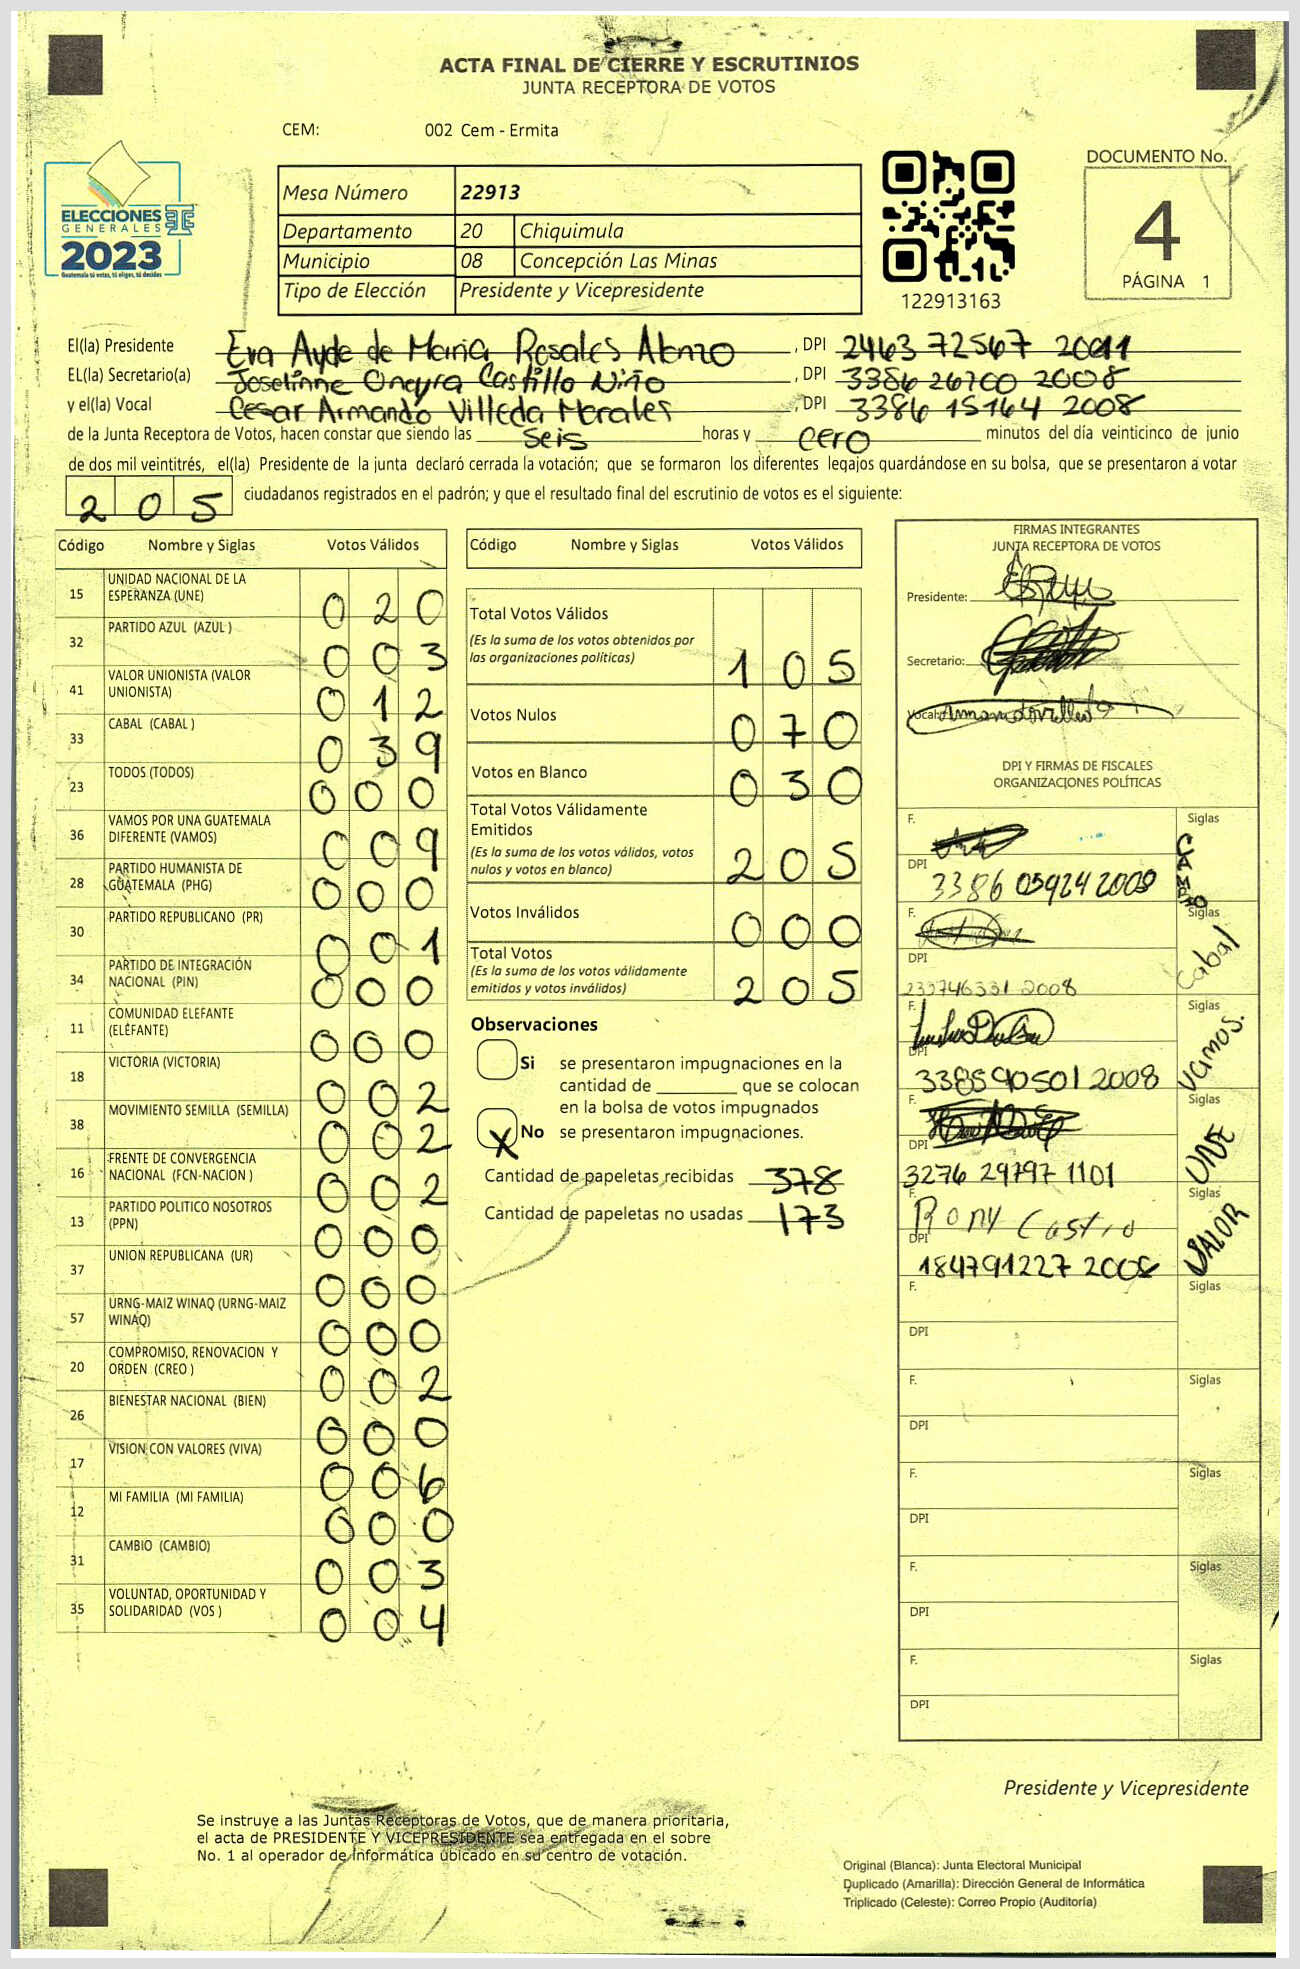 ACTA FINAL DE CIERRE Y ESCRUTINIOS
JUNTA RECEPTORA DE VOTOS
CEM: 002 Cem - Ermita
ELECCIONES
GENERALES
2023
Guatemala tú votas, tú eliges, tú decides
Mesa Número 22913
Departamento 20 Chiquimula
Municipio 08 Concepción Las Minas
Tipo de Elección Presidente y Vicepresidente
122913163
DOCUMENTO No.
4
PÁGINA 1
El(la) Presidente Eva Ayde de Maria Rosales Alonzo, DPI 2463 72567 2011
EL(la) Secretario(a) Joselinne Oneyra Castillo Niño, DPI 3386 26700 2008
y el(la) Vocal Cesar Armando Villeda Morales, DPI 3386 15164 2008
de la Junta Receptora de Votos, hacen constar que siendo las seis horas y cero minutos del día veinticinco de junio
de dos mil veintitrés, el(la) Presidente de la junta declaró cerrada la votación; que se formaron los diferentes legajos quardándose en su bolsa, que se presentaron a votar
205 ciudadanos registrados en el padrón; y que el resultado final del escrutinio de votos es el siguiente:
Código Nombre y Siglas Votos Válidos
15 UNIDAD NACIONAL DE LA ESPERANZA (UNE) 020
32 PARTIDO AZUL (AZUL ) 003
41 VALOR UNIONISTA (VALOR UNIONISTA) 012
33 CABAL (CABAL ) 039
23 TODOS (TODOS) 000
36 VAMOS POR UNA GUATEMALA DIFERENTE (VAMOS) 009
28 PARTIDO HUMANISTA DE GUATEMALA (PHG) 000
30 PARTIDO REPUBLICANO (PR) 001
34 PARTIDO DE INTEGRACIÓN NACIONAL (PIN) 000
11 COMUNIDAD ELEFANTE (ELEFANTE) 000
18 VICTORIA (VICTORIA) 002
38 MOVIMIENTO SEMILLA (SEMILLA) 002
16 FRENTE DE CONVERGENCIA NACIONAL (FCN-NACION ) 002
13 PARTIDO POLITICO NOSOTROS (PPN) 000
37 UNION REPUBLICANA (UR) 000
57 URNG-MAIZ WINAQ (URNG-MAIZ WINAQ) 000
20 COMPROMISO, RENOVACION Y ORDEN (CREO ) 002
26 BIENESTAR NACIONAL (BIEN) 000
17 VISION CON VALORES (VIVA) 006
12 MI FAMILIA (MI FAMILIA) 000
31 CAMBIO (CAMBIO) 003
35 VOLUNTAD, OPORTUNIDAD Y SOLIDARIDAD (VOS ) 004
Código Nombre y Siglas Votos Válidos
Total Votos Válidos
(Es la suma de los votos obtenidos por
las organizaciones políticas) 105
Votos Nulos 070
Votos en Blanco 030
Total Votos Válidamente
Emitidos
(Es la suma de los votos válidos, votos
nulos y votos en blanco) 205
Votos Inválidos 000
Total Votos
(Es la suma de los votos válidamente
emitidos y votos inválidos) 205
Observaciones
Si se presentaron impugnaciones en la
cantidad de ________ que se colocan
en la bolsa de votos impugnados
X No se presentaron impugnaciones.
Cantidad de papeletas recibidas 378
Cantidad de papeletas no usadas 173
FIRMAS INTEGRANTES
JUNTA RECEPTORA DE VOTOS
Presidente:
Secretario:
Vocal:
DPI Y FIRMAS DE FISCALES
ORGANIZACIONES POLÍTICAS
F. Siglas
DPI 3386 05924 2008
F. Siglas Cabal
DPI 2008
F. Siglas Vamos.
DPI 338590501 2008
F. Siglas UNE
DPI 3276 29797 1101
F. Rony Castro Siglas VALOR
DPI 184791227 2008
F. Siglas
DPI
F. Siglas
DPI
F. Siglas
DPI
F. Siglas
DPI
F. Siglas
DPI
Presidente y Vicepresidente
Se instruye a las Juntas Receptoras de Votos, que de manera prioritaria,
el acta de PRESIDENTE Y VICEPRESIDENTE sea entregada en el sobre
No. 1 al operador de Informática ubicado en su centro de votación.
Original (Blanca): Junta Electoral Municipal
Duplicado (Amarilla): Dirección General de Informática
Triplicado (Celeste): Correo Propio (Auditoría)